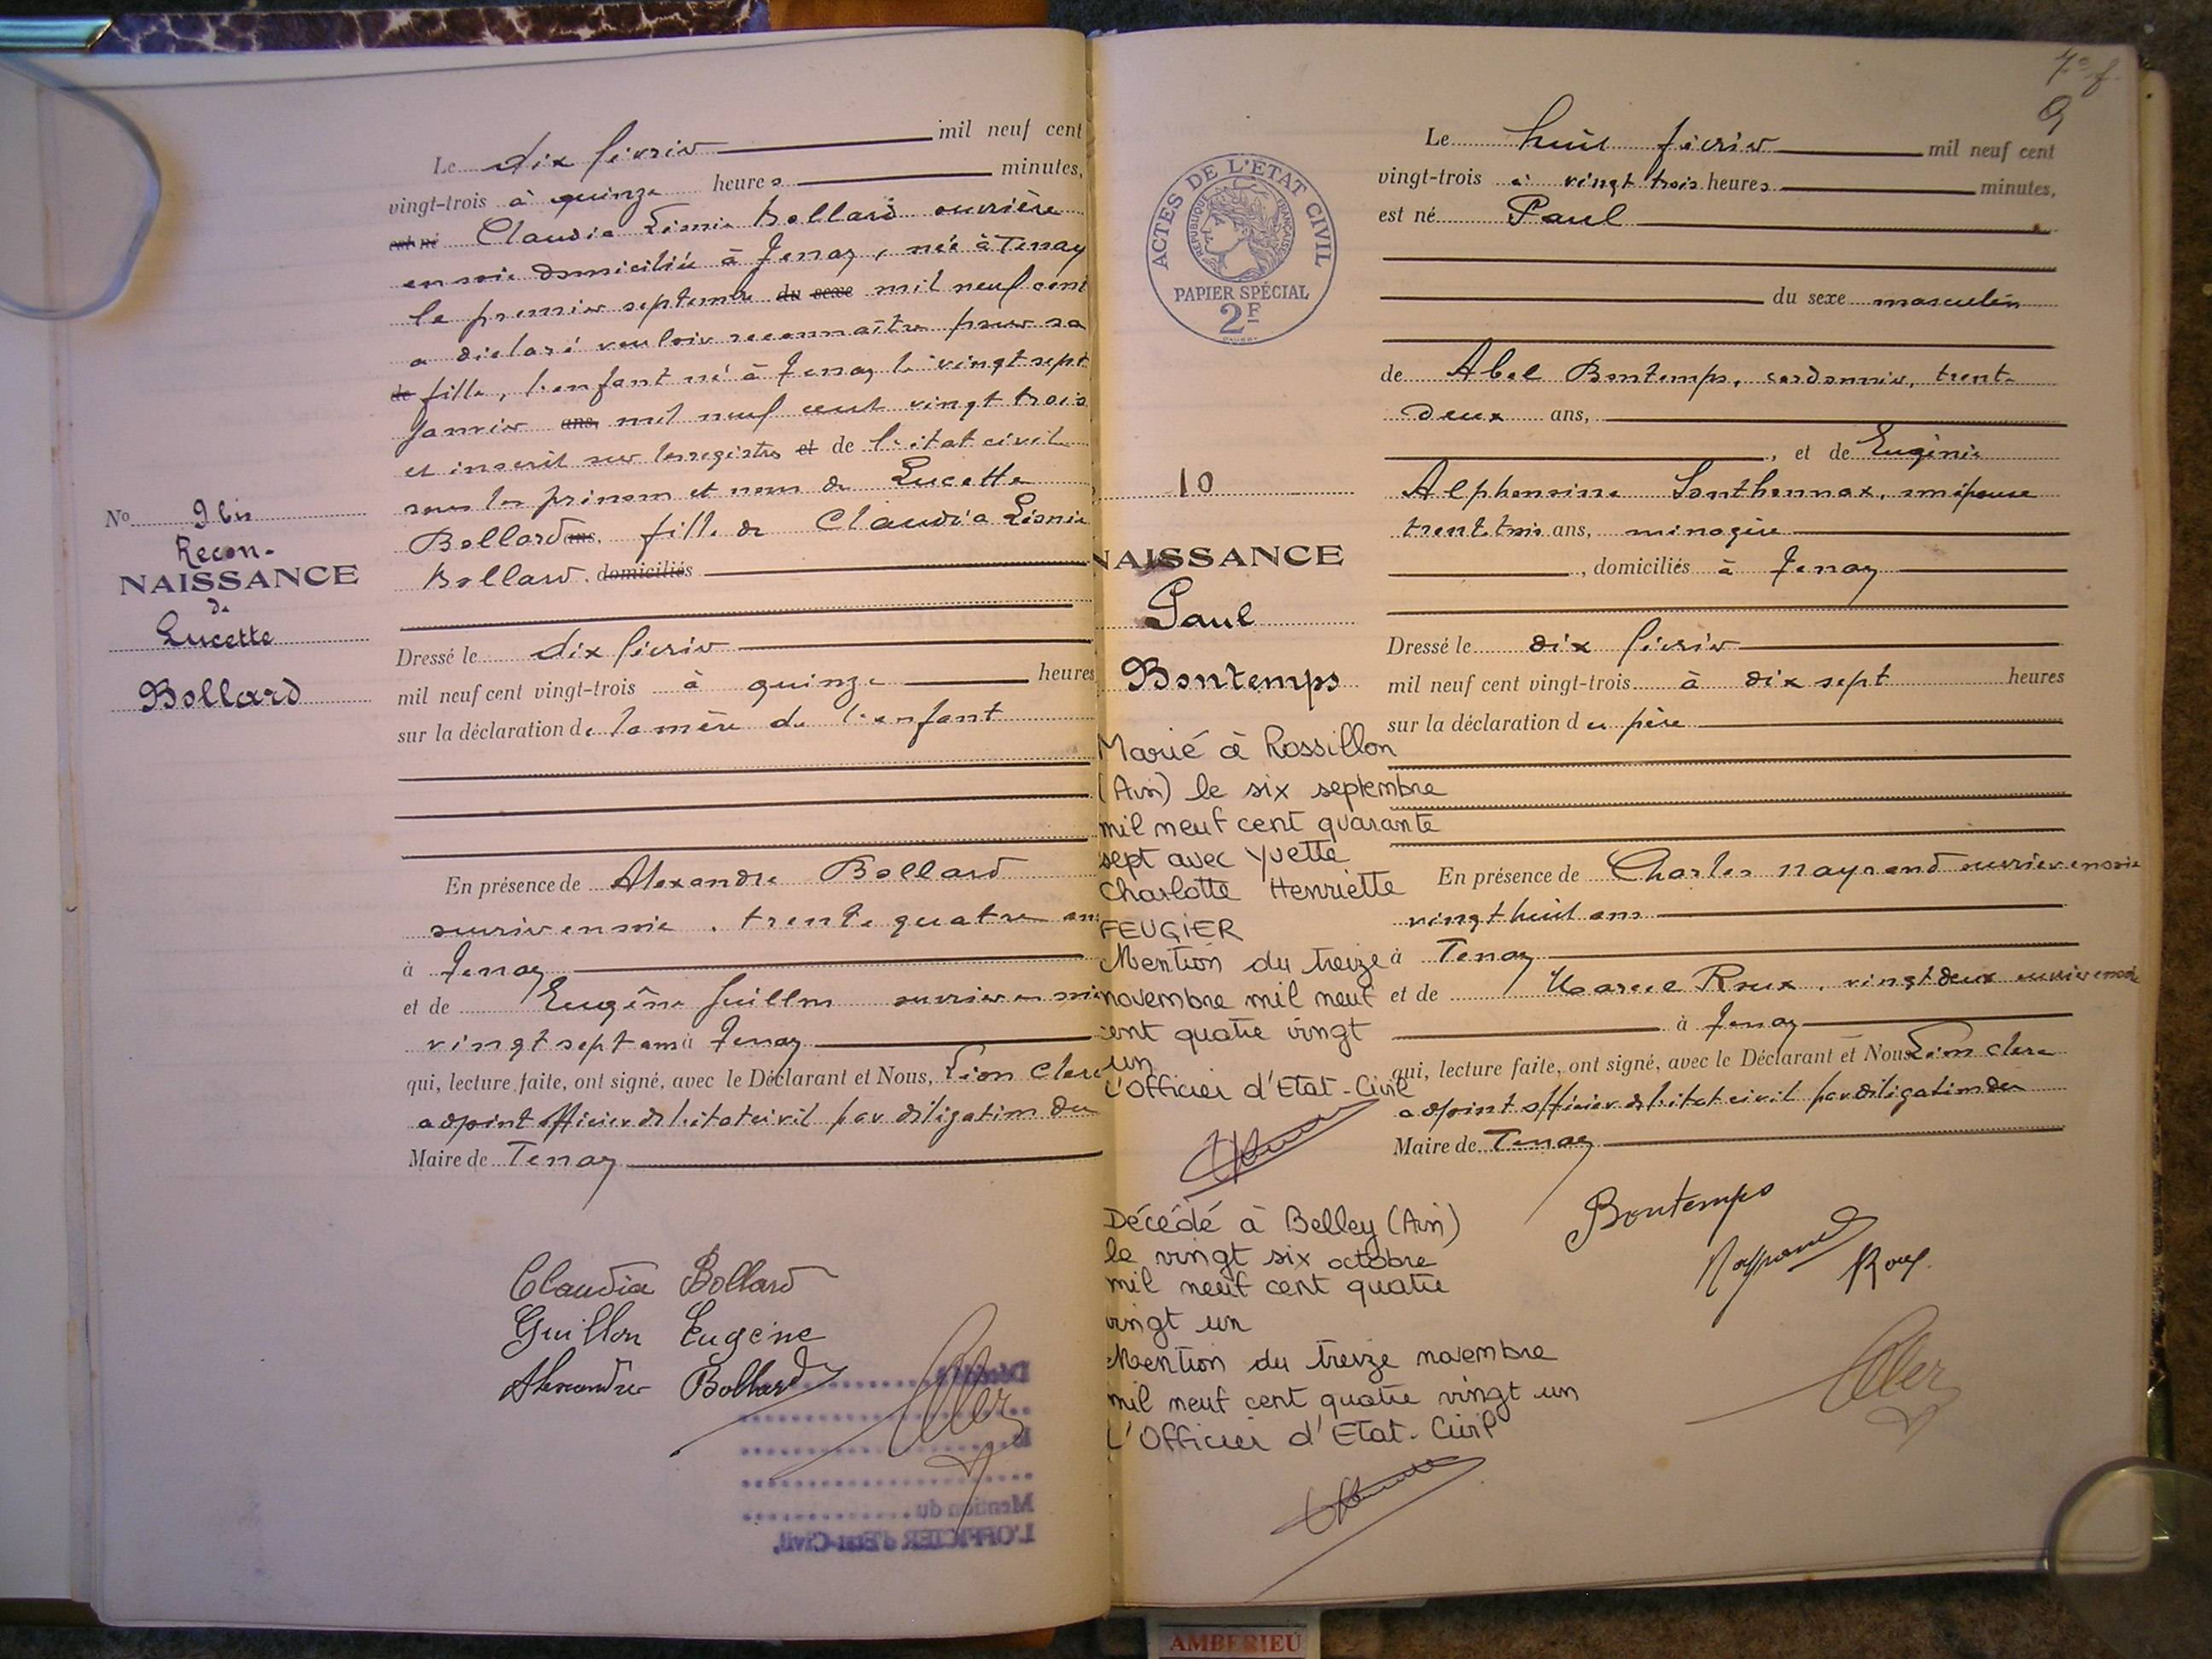 Le dix février mil neuf cent
vingt-trois à quinze heures minutes,
est né Claudia Léonie Bollard ouvrière
en soie domiciliée à Tenay, née à Tenay
le premier septembre du sexe mil neuf cent
a déclaré vouloir reconnaître pour sa
de fille, l'enfant né à Tenay le vingt sept
Janvier ans, mil neuf cent vingt trois
et inscrit sur les registres et de l'état civil
sous les prénom et nom de Lucette
Bollard ans, fille de Claudia Léonie
Bollard. domiciliés
No 9 bis
Recon-
NAISSANCE
de
Lucette
Bollard
Dressé le dix février
mil neuf cent vingt-trois à quinze heures
sur la déclaration de la mère de l'enfant
En présence de Alexandre Bollard
ouvrier en soie, trente quatre ans
à Tenay
et de Eugène Guillon ouvrier en soie
vingt sept ans à Tenay
qui, lecture faite, ont signé, avec le Déclarant et Nous, Léon Clerc
adjoint officier de l'état civil par délégation du
Maire de Tenay
Claudia Bollard
Guillon Eugène
Alexandre Bollard
Décédé à
le
Mention du
L'OFFICIER d'Etat-Civil,
7e f.
9
ACTES DE L'ETAT CIVIL
REPUBLIQUE FRANÇAISE
PAPIER SPÉCIAL
2F
Le huit février mil neuf cent
vingt-trois à vingt trois heures minutes,
est né Paul
du sexe masculin
de Abel Bontemps, cordonnier, trente
deux ans,
, et de Eugénie
Alphonsine Sonthonnax, son épouse
trente trois ans, ménagère
, domiciliés à Tenay
10
NAISSANCE
Paul
Bontemps
Dressé le dix février
mil neuf cent vingt-trois à dix sept heures
sur la déclaration du père
En présence de Charles Nayrand ouvrier en soie
vingt huit ans
à Tenay
et de Marcel Roux, vingt deux ouvrier en soie
à Tenay
qui, lecture faite, ont signé, avec le Déclarant et Nous Léon Clerc
adjoint officier de l'état civil par délégation du
Maire de Tenay
Bontemps
Nayrand
Roux
Marié à Rossillon
(Ain) le six septembre
mil neuf cent quarante
sept avec Yvette
Charlotte Henriette
FEUGIER
Mention du treize
novembre mil neuf
cent quatre vingt
un
L'Officier d'Etat-Civil
Décédé à Belley (Ain)
le vingt six octobre
mil neuf cent quatre
vingt un
Mention du treize novembre
mil neuf cent quatre vingt un
L'Officier d'Etat-Civil
AMBERIEU